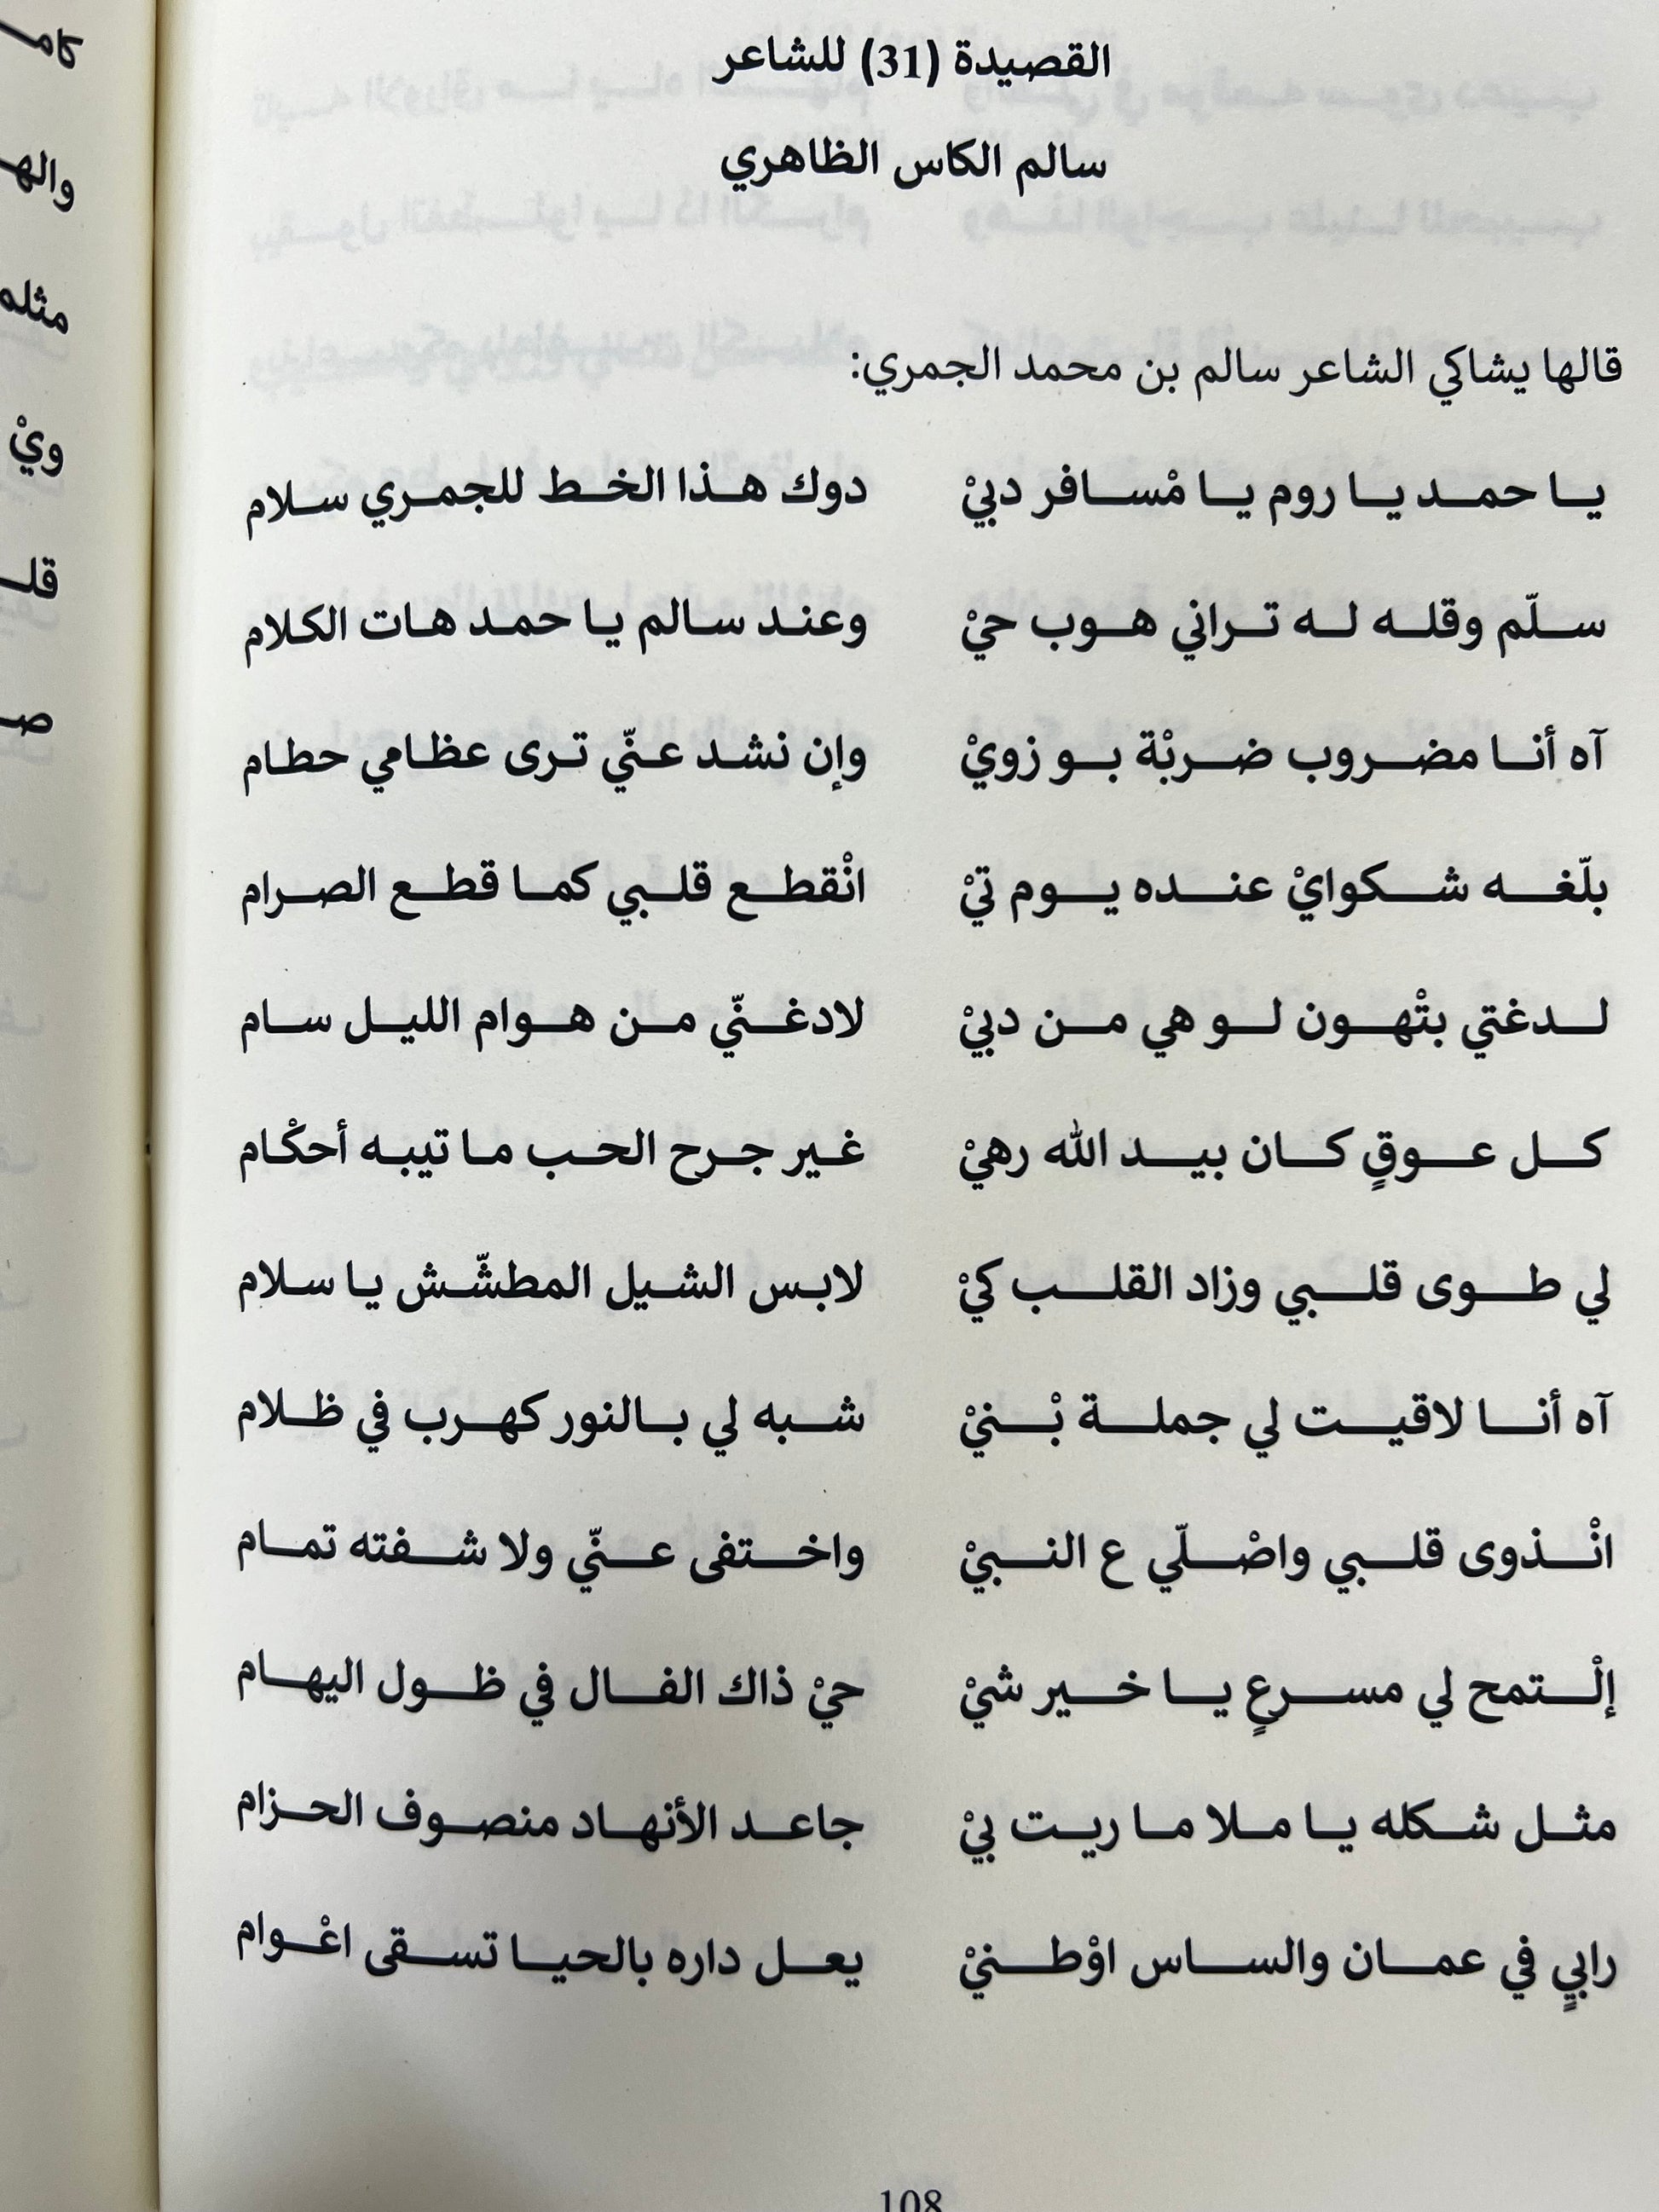 القصيدة (31) للشاعر
سالم الكاس الظاهري
قالها يشاكي الشاعر سالم بن محمد الجمري:
يا حمد يا روم يا مْسافر دبيْ دوك هذا الخط للجمري سلام
سلّم وقله له تراني هوب حيْ وعند سالم يا حمد هات الكلام
آه أنا مضروب ضربْة بو زويْ وإن نشد عنّي ترى عظامي حطام
بلّغه شكوايْ عنده يوم تيْ انْقطع قلبي كما قطع الصرام
لدغتي بتْهون لو هي من دبيْ لادغنّي من هوام الليل سام
كل عوقٍ كان بيد الله رهيْ غير جرح الحب ما تيبه أحكْام
لي طوى قلبي وزاد القلب كيْ لابس الشيل المطشّش يا سلام
آه أنا لاقيت لي جملة بْنيْ شبه لي بالنور كهرب في ظلام
انْذوى قلبي واصْلّي ع النبيْ واختفى عنّي ولا شفته تمام
إلْتمح لي مسرعٍ يا خير شيْ حيْ ذاك الفال في ظول اليهام
مثل شكله يا ملا ما ريت بيْ جاعد الأنهاد منصوف الحزام
رابيٍ في عمان والساس اوْطنيْ يعل داره بالحيا تسقى اعْوام
108
كلا
واله
مثلم
ويْ
قل
ص